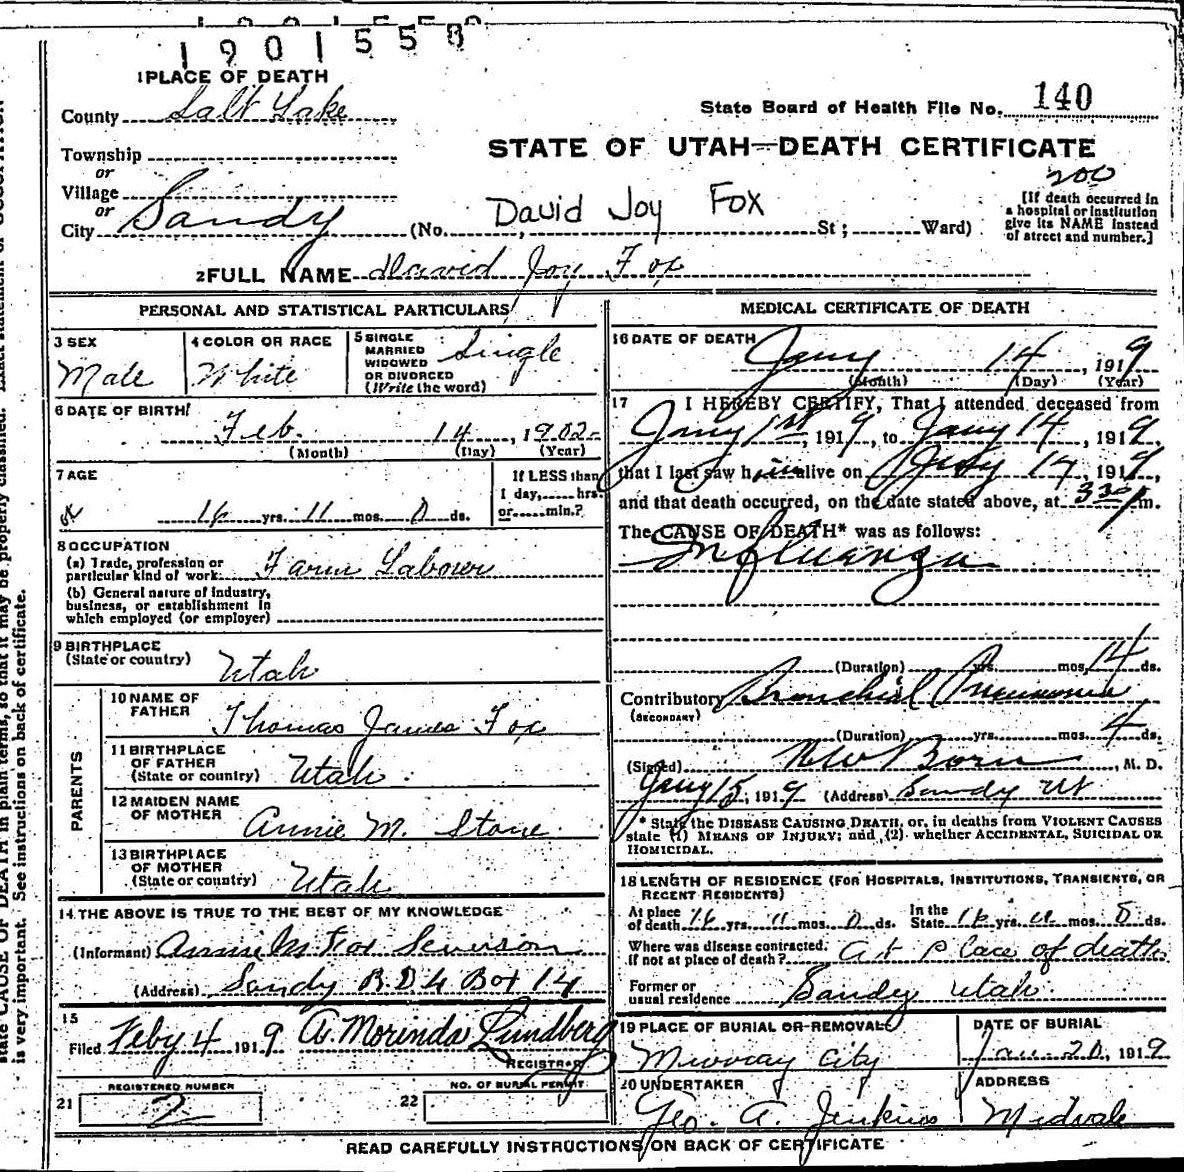 1901558
1 PLACE OF DEATH
County Salt Lake
State Board of Health File No. 140
Township
or
Village
or
City Sandy
STATE OF UTAH—DEATH CERTIFICATE
200
(No. David Joy Fox St; Ward)
[If death occurred in
a hospital or institution
give its NAME instead
of street and number.]
2 FULL NAME David Joy Fox
PERSONAL AND STATISTICAL PARTICULARS
3 SEX
Male
4 COLOR OR RACE
White
5 SINGLE
MARRIED
WIDOWED
OR DIVORCED
(Write the word)
Single
6 DATE OF BIRTH
Feb. 14, 1902
(Month) (Day) (Year)
7 AGE
16 yrs. 11 mos. 0 ds.
If LESS than
1 day, hrs.
or min.?
8 OCCUPATION
(a) Trade, profession or
particular kind of work Farm Laborer
(b) General nature of industry,
business, or establishment in
which employed (or employer)
9 BIRTHPLACE
(State or country) Utah
PARENTS
10 NAME OF
FATHER Thomas James Fox
11 BIRTHPLACE
OF FATHER
(State or country) Utah.
12 MAIDEN NAME
OF MOTHER Annie M. Stone.
13 BIRTHPLACE
OF MOTHER
(State or country) Utah
14 THE ABOVE IS TRUE TO THE BEST OF MY KNOWLEDGE
(Informant) Annie M Fox Severson
(Address) Sandy R.D 4 Box 14
15
Filed Feby 4 1919 A. Morinda Lundberg
REGISTRAR
21 REGISTERED NUMBER
2
22 NO. OF BURIAL PERMIT
MEDICAL CERTIFICATE OF DEATH
16 DATE OF DEATH
Jany 14, 1919
(Month) (Day) (Year)
17 I HEREBY CERTIFY, That I attended deceased from
Jany 1st, 1919, to Jany 14, 1919,
that I last saw him alive on Jany 14, 1919,
and that death occurred, on the date stated above, at 330 m.
The CAUSE OF DEATH* was as follows:
Influenza
(Duration) yrs. mos. 14 ds.
Contributory Bronchial Pneumonia
(SECONDARY)
(Duration) yrs. mos. 4 ds.
(Signed) Born, M. D.
Jany 15, 1919 (Address) Sandy Ut
* State the DISEASE CAUSING DEATH, or, in deaths from VIOLENT CAUSES
state (1) MEANS OF INJURY; and (2) whether ACCIDENTAL, SUICIDAL OR
HOMICIDAL.
18 LENGTH OF RESIDENCE (FOR HOSPITALS, INSTITUTIONS, TRANSIENTS, OR
RECENT RESIDENTS)
At place
of death 16 yrs. 11 mos. 0 ds.
In the
State 16 yrs. 11 mos. 0 ds.
Where was disease contracted,
if not at place of death? At Place of death
Former or
usual residence Sandy Utah.
19 PLACE OF BURIAL OR REMOVAL
Murray City
DATE OF BURIAL
Jan. 20, 1919
20 UNDERTAKER
Geo. A. Jenkins
ADDRESS
Midvale
READ CAREFULLY INSTRUCTIONS ON BACK OF CERTIFICATE
state CAUSE OF DEATH in plain terms, so that it may be properly classified.
is very important. See instructions on back of certificate.